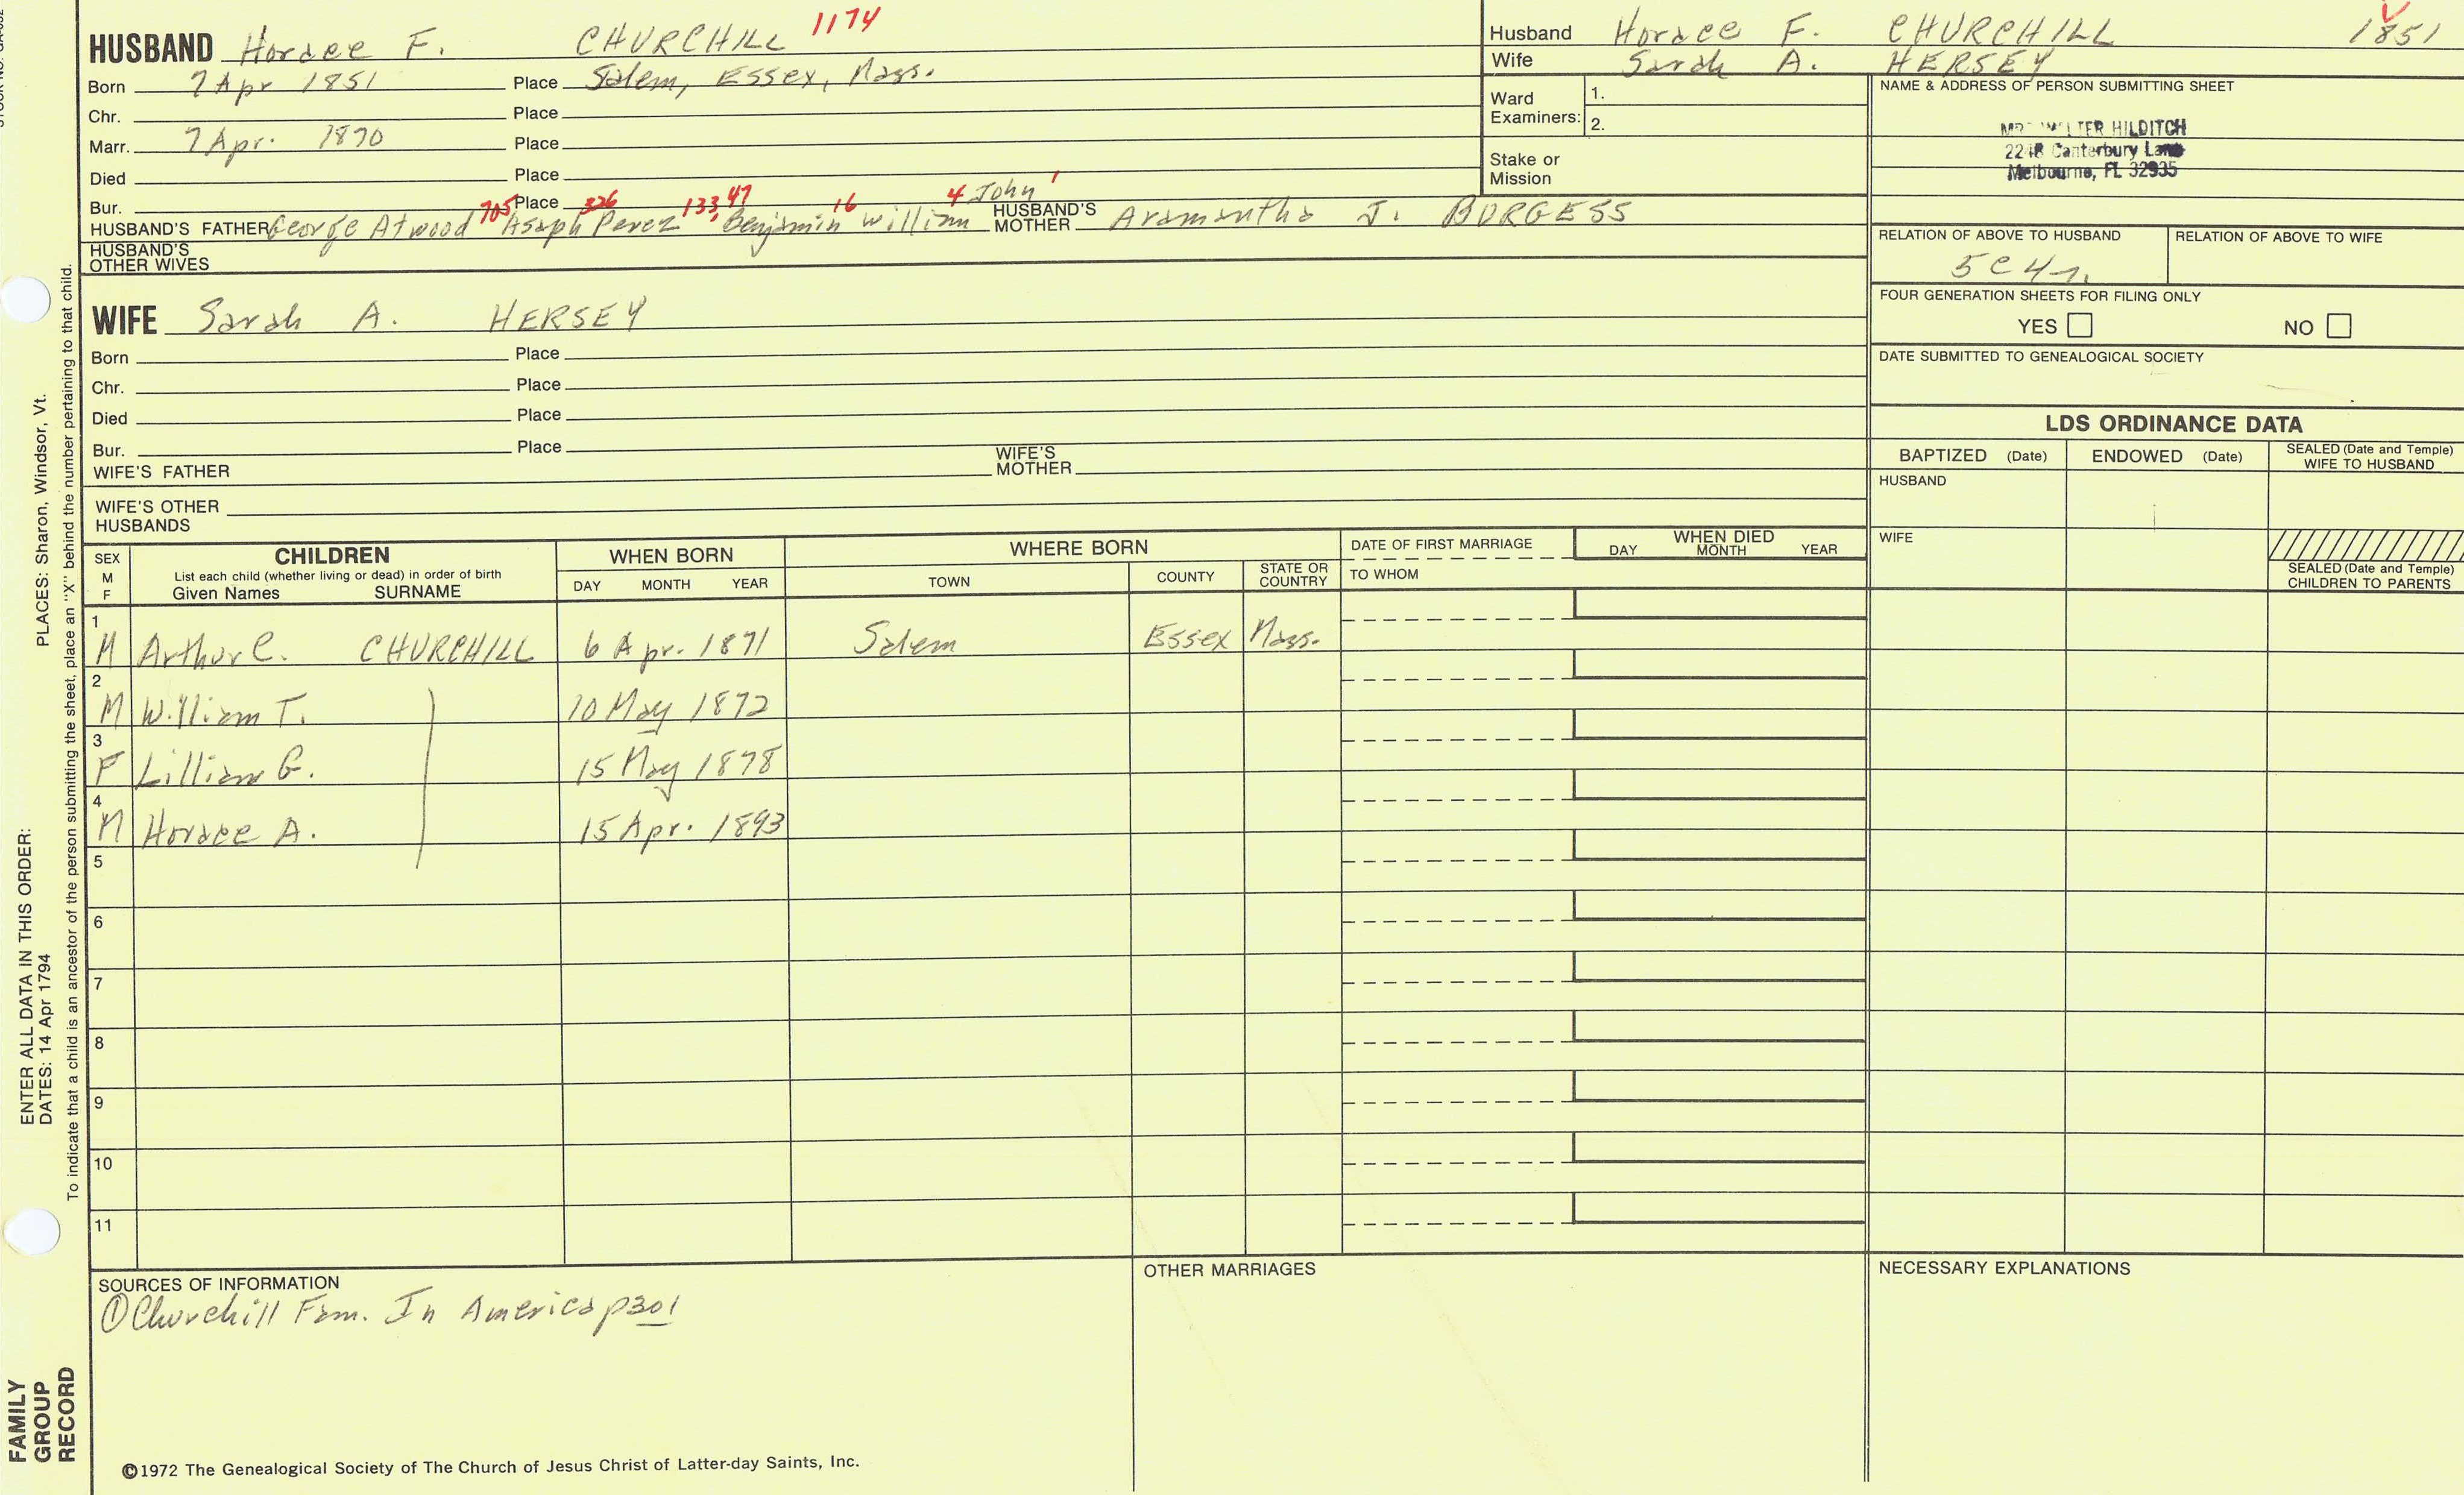 HUSBAND Horace F. CHURCHILL 1174
Born 7 Apr 1851 Place Salem, Essex, Mass.
Chr. Place
Marr. 7 Apr. 1870 Place
Died Place
Bur. Place
HUSBAND'S FATHER George Atwood 705 Asaph 326 Perez 133, 47 Benjamin 16 William 4 John 1 HUSBAND'S MOTHER Aramantha J. BURGESS
HUSBAND'S OTHER WIVES
Husband Horace F. CHURCHILL 1851
Wife Sarah A. HERSEY
Ward Examiners: 1.
2.
Stake or Mission
NAME & ADDRESS OF PERSON SUBMITTING SHEET
WALTER HILDITCH
Canterbury Lane
Melbourne, FL 32935
RELATION OF ABOVE TO HUSBAND RELATION OF ABOVE TO WIFE
5 C 4 r.
FOUR GENERATION SHEETS FOR FILING ONLY
YES NO
DATE SUBMITTED TO GENEALOGICAL SOCIETY
WIFE Sarah A. HERSEY
Born Place
Chr. Place
Died Place
Bur. Place
WIFE'S FATHER WIFE'S MOTHER
WIFE'S OTHER HUSBANDS
LDS ORDINANCE DATA
BAPTIZED (Date) ENDOWED (Date) SEALED (Date and Temple) WIFE TO HUSBAND
HUSBAND
WIFE
SEALED (Date and Temple) CHILDREN TO PARENTS
SEX M F CHILDREN
List each child (whether living or dead) in order of birth
Given Names SURNAME
WHEN BORN
DAY MONTH YEAR
WHERE BORN
TOWN COUNTY STATE OR COUNTRY
DATE OF FIRST MARRIAGE
TO WHOM
WHEN DIED
DAY MONTH YEAR
1 M Arthur C. CHURCHILL 6 Apr. 1871 Salem Essex Mass.
2 M William T. 10 May 1872
3 F Lillian G. 15 May 1878
4 M Horace A. 15 Apr. 1893
5
6
7
8
9
10
11
SOURCES OF INFORMATION
① Churchill Fam. In America p301
OTHER MARRIAGES
NECESSARY EXPLANATIONS
©1972 The Genealogical Society of The Church of Jesus Christ of Latter-day Saints, Inc.
FAMILY GROUP RECORD
ENTER ALL DATA IN THIS ORDER:
DATES: 14 Apr 1794
PLACES: Sharon, Windsor, Vt.
To indicate that a child is an ancestor of the person submitting the sheet, place an "X" behind the number pertaining to that child.